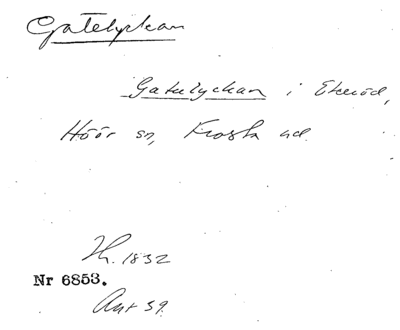 Gatelyckan
Gatulyckan i Ekeröd,
Höör sn, Frosta hd.
Th. 1832
Nr 6853.
Ant 39.